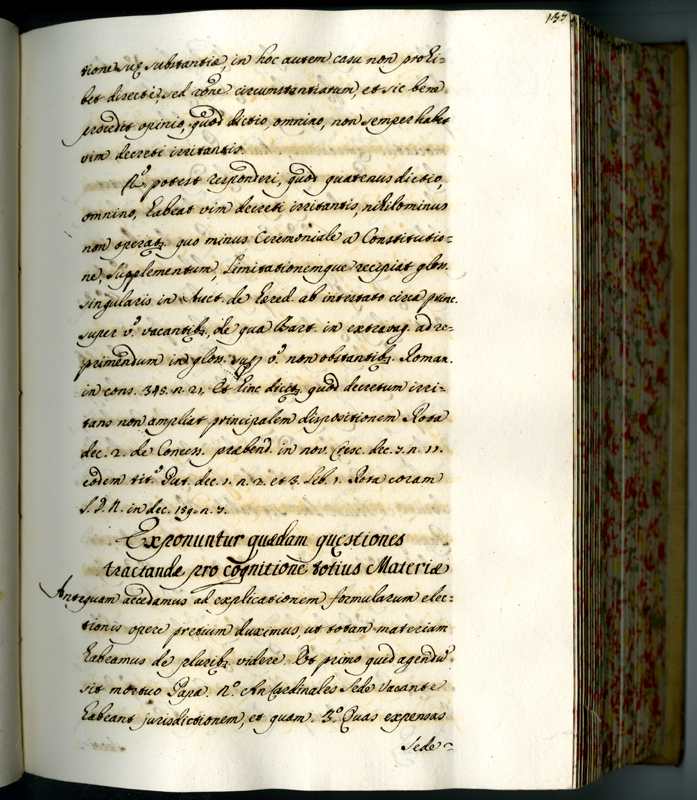 137
tione suę substantiæ, in hoc autem casu non prohi=
bet directe, sed rōne circumstantiarum, et sic bene
procedit opinio, quod dictio, omnino, non semper habet
vim decreti irritantis.
potest responderi, quod quatenus dictio,
omnino, habeat vim decreti irritantis, nihilominus
non operatꝛ quo minus Ceremoniale à Constitutio=
ne, Supplementum, Limitationemque recipiat glos.
singularis in Auct. de hæred. ab intestato circa princ.
super vº. vacantibꝫ, de qua Bart. in extravag. ad re=
primendum in glos. vº. non obstantibꝫ. Roman.
in cons. 345. n. 21. Et hinc dicitꝛ quod decretum irri=
tans non ampliat principalem dispositionem Rota
dec. 2. de Concess. præbend. in nov. Cresc. dec. 7. n. 11.
eodem titº. Pat. dec. 1. n. 2. et 3. lib. 1. Rota coram
S. D. N. in dec. 159. n. 7.
Exponuntur quædam quęstiones
tractandæ pro cognitione totius Materiæ
Antequam accedamus ad explicationem formularum elec=
tionis opere pretium duximus, ut totam materiam
habeamus de pluribꝫ videre. Et primo quid agendū
sit mortuo Papa. 2º. An Cardinales Sede Vacante
habeant jurisdictionem, et quam. 3º. Quas expensas
Sede